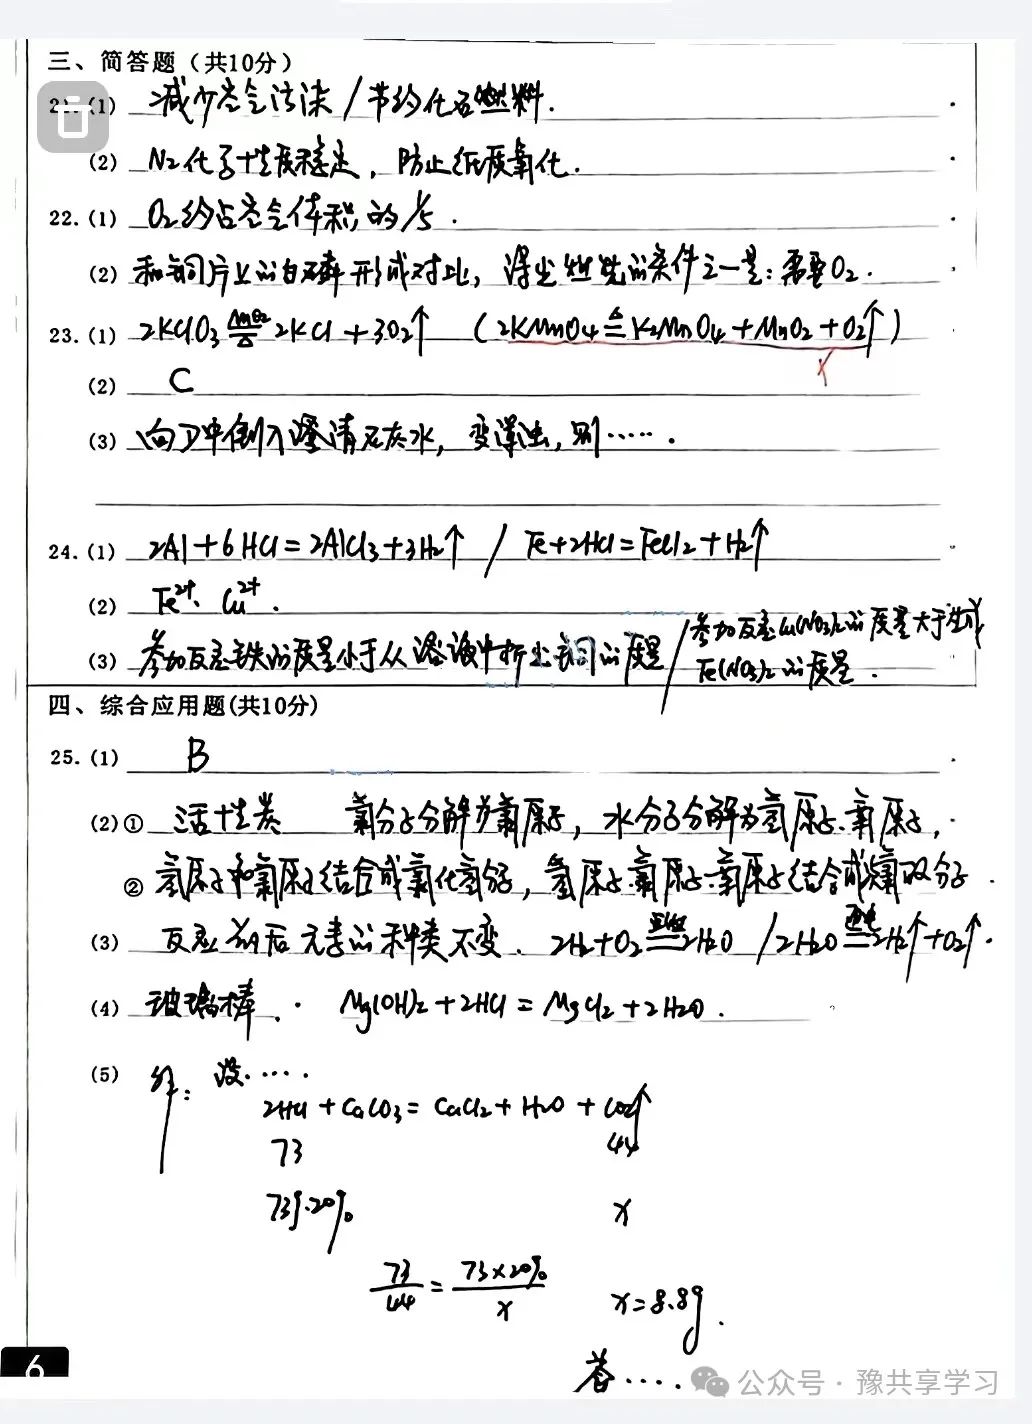 三、简答题（共10分）
21.(1) 减少空气污染/节约化石燃料.
(2) N₂化学性质稳定，防止纸质氧化.
22.(1) O₂约占空气体积的1/5.
(2) 和铜片上的白磷形成对比，得出燃烧的条件之一是：需要O₂.
23.(1) 2KClO₃ MnO₂ ═ △ 2KCl+3O₂↑ (2KMnO₄ △ ═ K₂MnO₄+MnO₂+O₂↑) ×
(2) C
(3) 向D中倒入澄清石灰水，变浑浊，则…….
24.(1) 2Al+6HCl=2AlCl₃+3H₂↑ / Fe+2HCl=FeCl₂+H₂↑
(2) Fe²⁺、Cu²⁺.
(3) 参加反应铁的质量小于从溶液中析出铜的质量/参加反应Cu(NO₃)₂的质量大于生成
Fe(NO₃)₂的质量.
四、综合应用题(共10分)
25.(1) B
(2)① 活性炭 氯分子分解为氯原子，水分子分解为氢原子、氧原子，
② 氢原子和氯原子结合成氯化氢分子，氢原子、氯原子、氧原子结合成次氯酸分子.
(3) 反应前后元素的种类不变. 2H₂+O₂ 点燃 ═ 2H₂O / 2H₂O 通电 ═ 2H₂↑+O₂↑.
(4) 玻璃棒. Mg(OH)₂+2HCl=MgCl₂+2H₂O.
(5) 解：设…….
2HCl+CaCO₃=CaCl₂+H₂O+CO₂↑
73 44
73g·20% x
73/44=73×20%/x x=8.8g.
答…….
6
公众号·豫共享学习